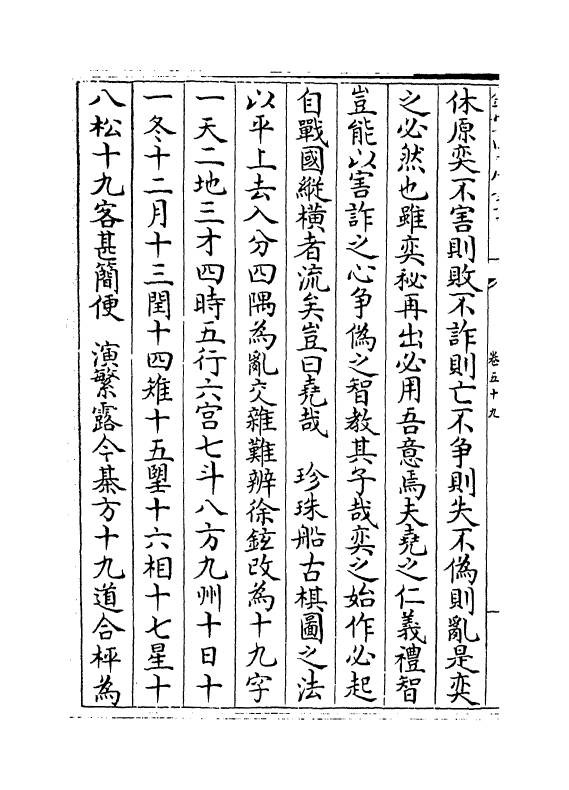 休原奕不害則敗不詐則亡不争則失不偽則亂是奕
之必然也雖奕秘再出必用吾意焉夫堯之仁義禮智
豈能以害詐之心争偽之智教其子哉奕之始作必起
自戰國縱橫者流矣豈曰堯哉　珍珠船古棋圖之法
以平上去入分四隅為亂交雜難辨徐鉉改為十九字
一天二地三才四時五行六宫七斗八方九州十日十
一冬十二月十三閏十四雉十五望十六相十七星十
八松十九客甚簡便　演繁露今棊方十九道合枰為
卷五十九